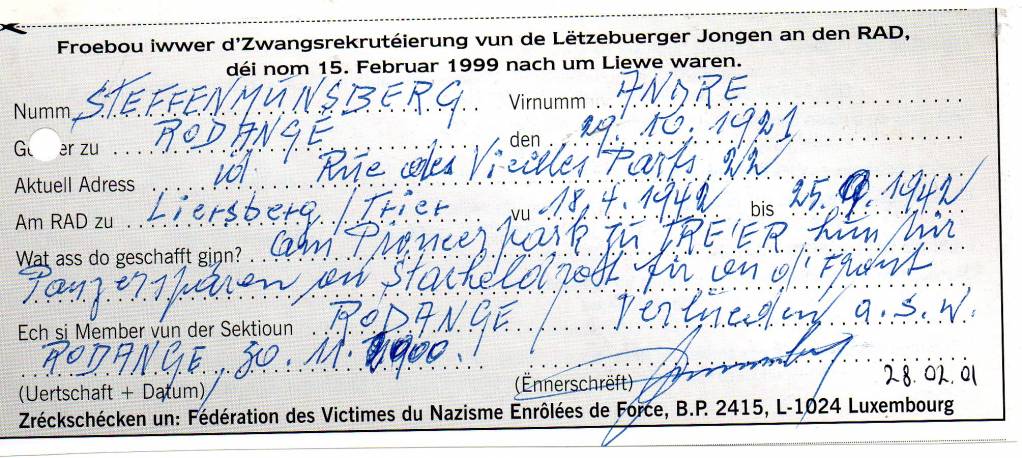 Froebou iwwer d'Zwangsrekrutéierung vun de Lëtzebuerger Jongen an den RAD,
déi nom 15. Februar 1999 nach um Liewe waren.
Numm STEFFENMÜNSBERG Virnumm ANDRE
er zu RODANGE den 29. 10. 1921
Aktuell Adress id Rue des Vieilles Parts 22
Am RAD zu Liersberg / Trier vu 18. 4. 1942 bis 25. 9. 1942
Wat ass do geschafft ginn? am Pioneerpark zu TREIER hun mir
Panzerspären an Stacheldrot fir an d'Front
Ech si Member vun der Sektioun RODANGE Verlueden a. s. w.
RODANGE, 30. 11. 1900.
(Uertschaft + Datum) (Ënnerschrëft) 28.02.01
Zréckschécken un: Fédération des Victimes du Nazisme Enrôlées de Force, B.P. 2415, L-1024 Luxembourg